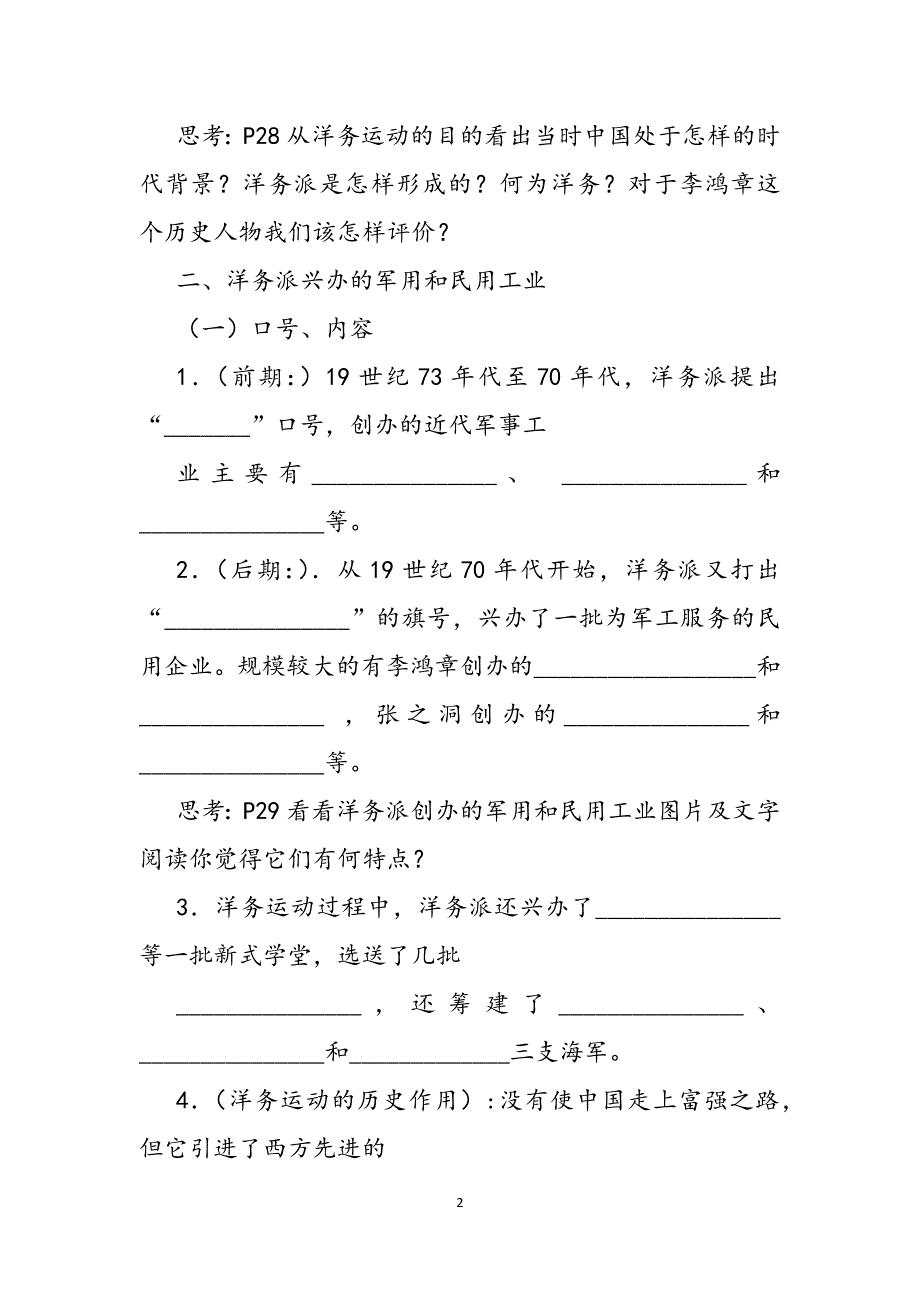 思考：P28 从洋务运动的目的看出当时中国处于怎样的时
代背景？洋务派是怎样形成的？何为洋务？对于李鸿章这
个历史人物我们该怎样评价？
二、洋务派兴办的军用和民用工业
（一）口号、内容
1.（前期：）19 世纪 73 年代至 70 年代，洋务派提出
“_______”口号，创办的近代军事工
业主要有_______________、 _______________和
_______________等。
2.（后期：）. 从 19 世纪 70 年代开始，洋务派又打出
“_______________”的旗号，兴办了一批为军工服务的民
用企业。规模较大的有李鸿章创办的__________________和
_______________ ，张之洞创办的_______________和
_______________等。
思考：P29 看看洋务派创办的军用和民用工业图片及文字
阅读你觉得它们有何特点？
3. 洋务运动过程中，洋务派还兴办了_______________
等一批新式学堂，选送了几批
_______________，还筹建了_______________、
_______________和_____________三支海军。
4.（洋务运动的历史作用）:没有使中国走上富强之路，
但它引进了西方先进的
2